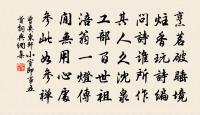 烹茗破睡境
炷香玩詩編
問詩誰所作
其人久沈泉
工部百世祖
涪翁一燈傳
閒無用心處
參此如參禪
曾幾東軒小室即事五
首